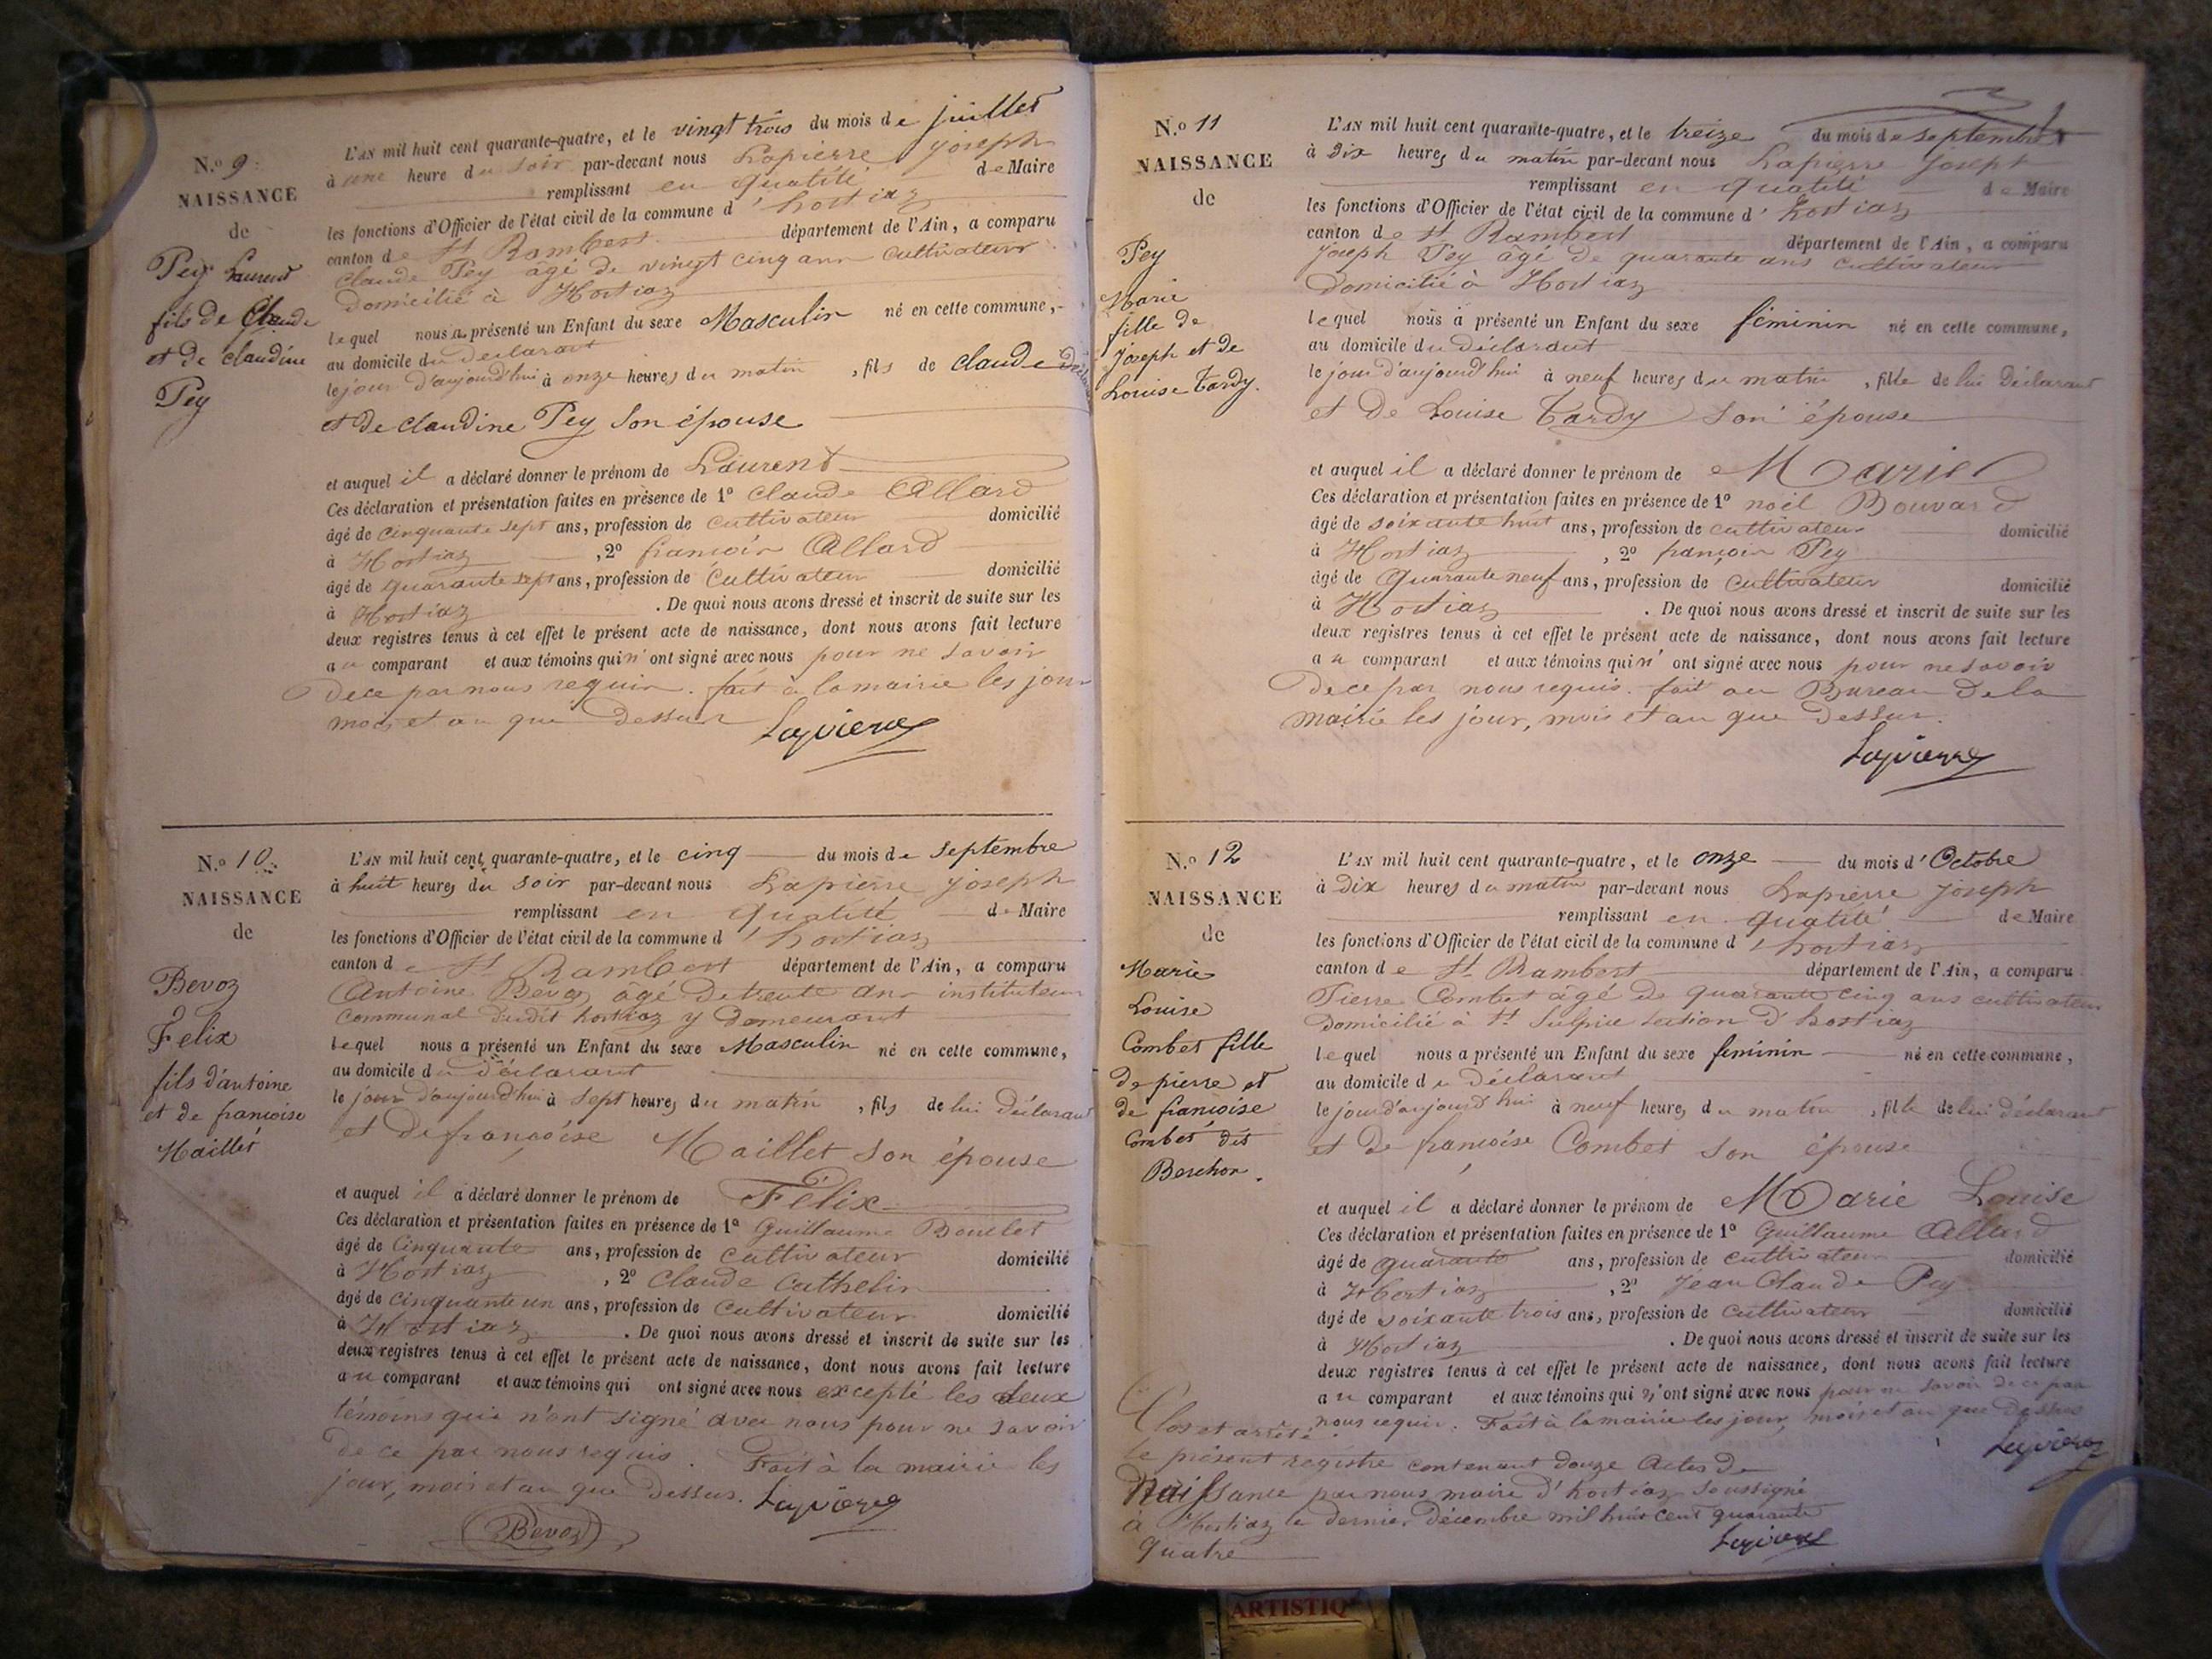 N.o 9
NAISSANCE
de
Pey Laurent
fils de Claude
et de claudine
Pey
L'AN mil huit cent quarante-quatre, et le vingt trois du mois de juillet
à une heure du soir par-devant nous Lapierre joseph
remplissant en qualité de Maire
les fonctions d'Officier de l'état civil de la commune d'hostiaz
canton de St Rambert département de l'Ain, a comparu
Claude Pey âgé de vingt cinq ans cultivateur
Domicilié à Hostiaz
lequel nous a présenté un Enfant du sexe Masculin né en cette commune,
au domicile du déclarant
le jour d'aujourd'hui à onze heures du matin, fils de claude
et de claudine Pey son épouse
et auquel il a déclaré donner le prénom de Laurent
Ces déclaration et présentation faites en présence de 1o Claude Allard
âgé de cinquante sept ans, profession de cultivateur domicilié
à Hostiaz, 2o françois Allard
âgé de quarante sept ans, profession de cultivateur domicilié
à Hostiaz. De quoi nous avons dressé et inscrit de suite sur les
deux registres tenus à cet effet le présent acte de naissance, dont nous avons fait lecture
au comparant et aux témoins qui n'ont signé avec nous pour ne savoir
De ce par nous requis. fait à la mairie les jour
mois et an que Dessus Lapierre
N.o 10
NAISSANCE
de
Bevoz
Felix
fils d'antoine
et de francoise
Maillet
L'AN mil huit cent quarante-quatre, et le cinq du mois de septembre
à huit heures du soir par-devant nous Lapierre joseph
remplissant en qualité de Maire
les fonctions d'Officier de l'état civil de la commune d'hostiaz
canton de St Rambert département de l'Ain, a comparu
Antoine Bevoz âgé de trente ans instituteur
communal dudit hostiaz y demeurant
lequel nous a présenté un Enfant du sexe Masculin né en cette commune,
au domicile du déclarant
le jour d'aujourd'hui à sept heures du matin, fils de lui Déclarant
et de françoise Maillet son épouse
et auquel il a déclaré donner le prénom de Félix
Ces déclaration et présentation faites en présence de 1o Guillaume Boullet
âgé de Cinquante ans, profession de cultivateur domicilié
à Hostiaz, 2o Claude Cathelin
âgé de cinquante un ans, profession de Cultivateur domicilié
à Hostiaz. De quoi nous avons dressé et inscrit de suite sur les
deux registres tenus à cet effet le présent acte de naissance, dont nous avons fait lecture
au comparant et aux témoins qui ont signé avec nous excepté les deux
témoins qui n'ont signé avec nous pour ne savoir
de ce par nous requis. Fait à la mairie les
jour, mois et an que Dessus. Lapierre
Bevoz
N.o 11
NAISSANCE
de
Pey
Marie
fille de
joseph et de
Louise Tardy.
L'AN mil huit cent quarante-quatre, et le treize du mois de septembre
à Dix heures du matin par-devant nous Lapierre joseph
remplissant en qualité de Maire
les fonctions d'Officier de l'état civil de la commune d'hostiaz
canton de st Rambert département de l'Ain, a comparu
Joseph Pey âgé de quarante ans cultivateur
Domicilié à Hostiaz
lequel nous a présenté un Enfant du sexe féminin né en cette commune,
au domicile du Déclarant
le jour d'aujourd'hui à neuf heures du matin, fille de lui Déclarant
et de Louise Tardy son épouse
et auquel il a déclaré donner le prénom de Marie
Ces déclaration et présentation faites en présence de 1o noël Bouvard
âgé de soixante huit ans, profession de cultivateur domicilié
à Hostiaz, 2o françois Pey
âgé de Quarante neuf ans, profession de cultivateur domicilié
à Hostiaz. De quoi nous avons dressé et inscrit de suite sur les
deux registres tenus à cet effet le présent acte de naissance, dont nous avons fait lecture
au comparant et aux témoins qui n'ont signé avec nous pour ne savoir
De ce par nous requis. fait au Bureau de la
mairie les jour, mois et an que Dessus.
Lapierre
N.o 12
NAISSANCE
de
Marie
Louise
Combet fille
de pierre et
de francoise
Combet dit
Berchon.
L'AN mil huit cent quarante-quatre, et le onze du mois d'Octobre
à Dix heures du matin par-devant nous Lapierre joseph
remplissant en qualité de Maire
les fonctions d'Officier de l'état civil de la commune d'hostiaz
canton de St Rambert département de l'Ain, a comparu
Pierre Combet âgé de quarante cinq ans cultivateur
Domicilié à St Sulpice section d'hostiaz
lequel nous a présenté un Enfant du sexe feminin né en cette commune,
au domicile du Déclarant
le jour d'aujourd'hui à neuf heures du matin, fille de lui déclarant
et de françoise Combet son épouse
et auquel il a déclaré donner le prénom de Marie Louise
Ces déclaration et présentation faites en présence de 1o Guillaume Allard
âgé de quarante ans, profession de cultivateur domicilié
à Hostiaz, 2o Jean Claude Pey
âgé de soixante trois ans, profession de cultivateur domicilié
à Hostiaz. De quoi nous avons dressé et inscrit de suite sur les
deux registres tenus à cet effet le présent acte de naissance, dont nous avons fait lecture
au comparant et aux témoins qui n'ont signé avec nous pour ne savoir de ce par
nous requis. Fait à la mairie les jour, mois et an que Dessus
Lapierre
Clos et arrêté
le présent registre contenant douze Actes De
Naissance par nous maire d'hostiaz soussigné
à Hostiaz le dernier Décembre mil huit cent quarante
quatre Lapierre
ARTISTIQ